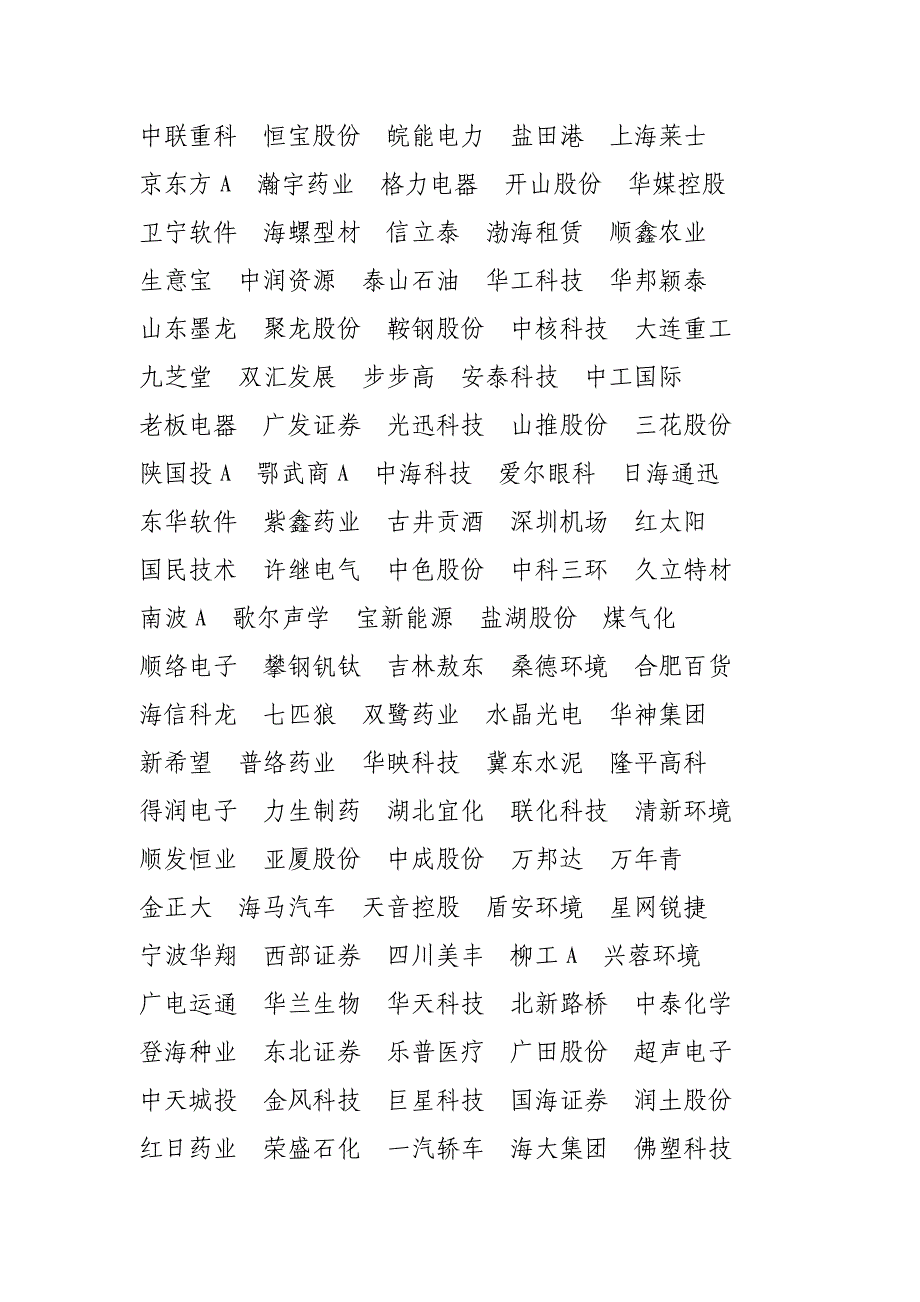 中联重科 恒宝股份 皖能电力 盐田港 上海莱士
京东方A 瀚宇药业 格力电器 开山股份 华媒控股
卫宁软件 海螺型材 信立泰 渤海租赁 顺鑫农业
生意宝 中润资源 泰山石油 华工科技 华邦颖泰
山东墨龙 聚龙股份 鞍钢股份 中核科技 大连重工
九芝堂 双汇发展 步步高 安泰科技 中工国际
老板电器 广发证券 光迅科技 山推股份 三花股份
陕国投A 鄂武商A 中海科技 爱尔眼科 日海通迅
东华软件 紫鑫药业 古井贡酒 深圳机场 红太阳
国民技术 许继电气 中色股份 中科三环 久立特材
南波A 歌尔声学 宝新能源 盐湖股份 煤气化
顺络电子 攀钢钒钛 吉林敖东 桑德环境 合肥百货
海信科龙 七匹狼 双鹭药业 水晶光电 华神集团
新希望 普络药业 华映科技 冀东水泥 隆平高科
得润电子 力生制药 湖北宜化 联化科技 清新环境
顺发恒业 亚厦股份 中成股份 万邦达 万年青
金正大 海马汽车 天音控股 盾安环境 星网锐捷
宁波华翔 西部证券 四川美丰 柳工A 兴蓉环境
广电运通 华兰生物 华天科技 北新路桥 中泰化学
登海种业 东北证券 乐普医疗 广田股份 超声电子
中天城投 金风科技 巨星科技 国海证券 润土股份
红日药业 荣盛石化 一汽轿车 海大集团 佛塑科技